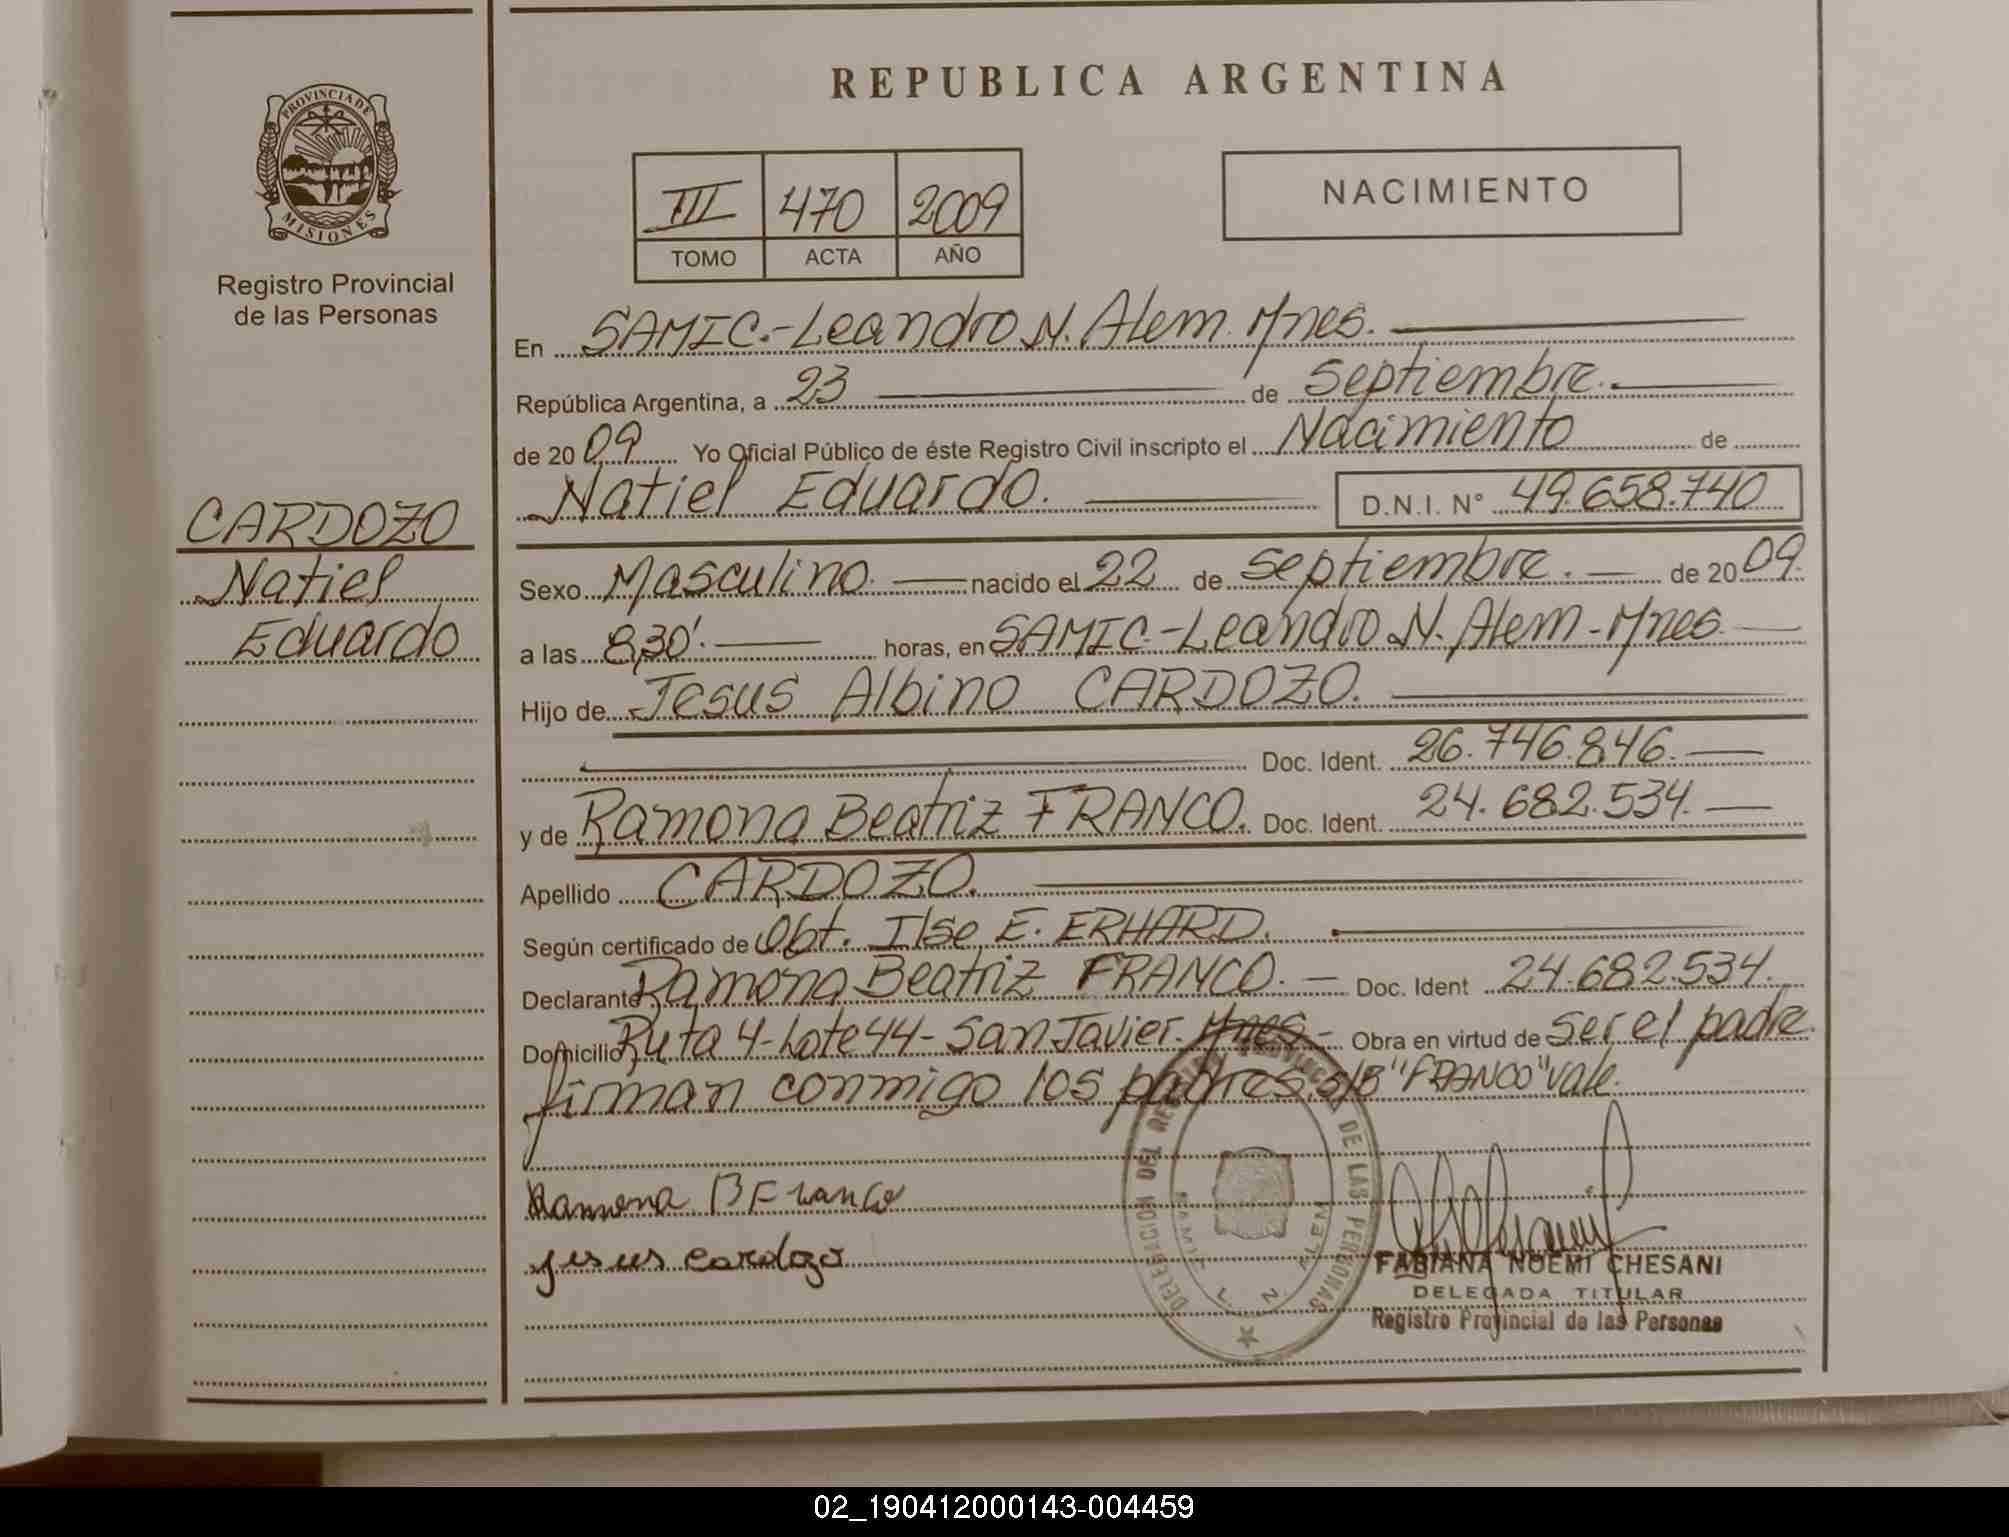 REPUBLICA ARGENTINA
PROVINCIA DE
MISIONES
Registro Provincial
de las Personas
III 470 2009
TOMO ACTA AÑO
NACIMIENTO
CARDOZO
Natiel
Eduardo
En SAMIC.-Leandro N. Alem. Mnes.
República Argentina, a 23 de Septiembre.
de 2009. Yo Oficial Público de éste Registro Civil inscripto el Nacimiento de
Natiel Eduardo. D.N.I. N° 49.658.740
Sexo Masculino. nacido el 22 de Septiembre. de 2009.
a las 8,30'. horas, en SAMIC.-Leandro N. Alem-Mnes.
Hijo de Jesus Albino CARDOZO.
Doc. Ident. 26.746.846.
y de Ramona Beatriz FRANCO. Doc. Ident. 24.682.534.
Apellido CARDOZO.
Según certificado de Obt. Ilse E. ERHARD.
Declarante Ramona Beatriz FRANCO. Doc. Ident 24.682.534.
Domicilio Ruta 4-Lote 44-San Javier. Mnes- Obra en virtud de Ser el padre.
firman conmigo los padres. s/B "FRANCO" vale.
Ramona B Franco
Jesus cardozo
DELEGACION DEL REGISTRO PROVINCIAL DE LAS PERSONAS
L. N. ALEM
FABIANA NOEMI CHESANI
DELEGADA TITULAR
Registro Provincial de las Personas
02_190412000143-004459